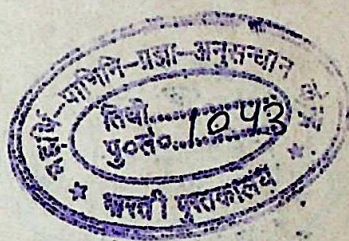 महर्षि-पाणिनि-प्रज्ञा-अनुसन्धान
तिथी..................
पु०सं०......1043
* भारती पुस्तकालय *